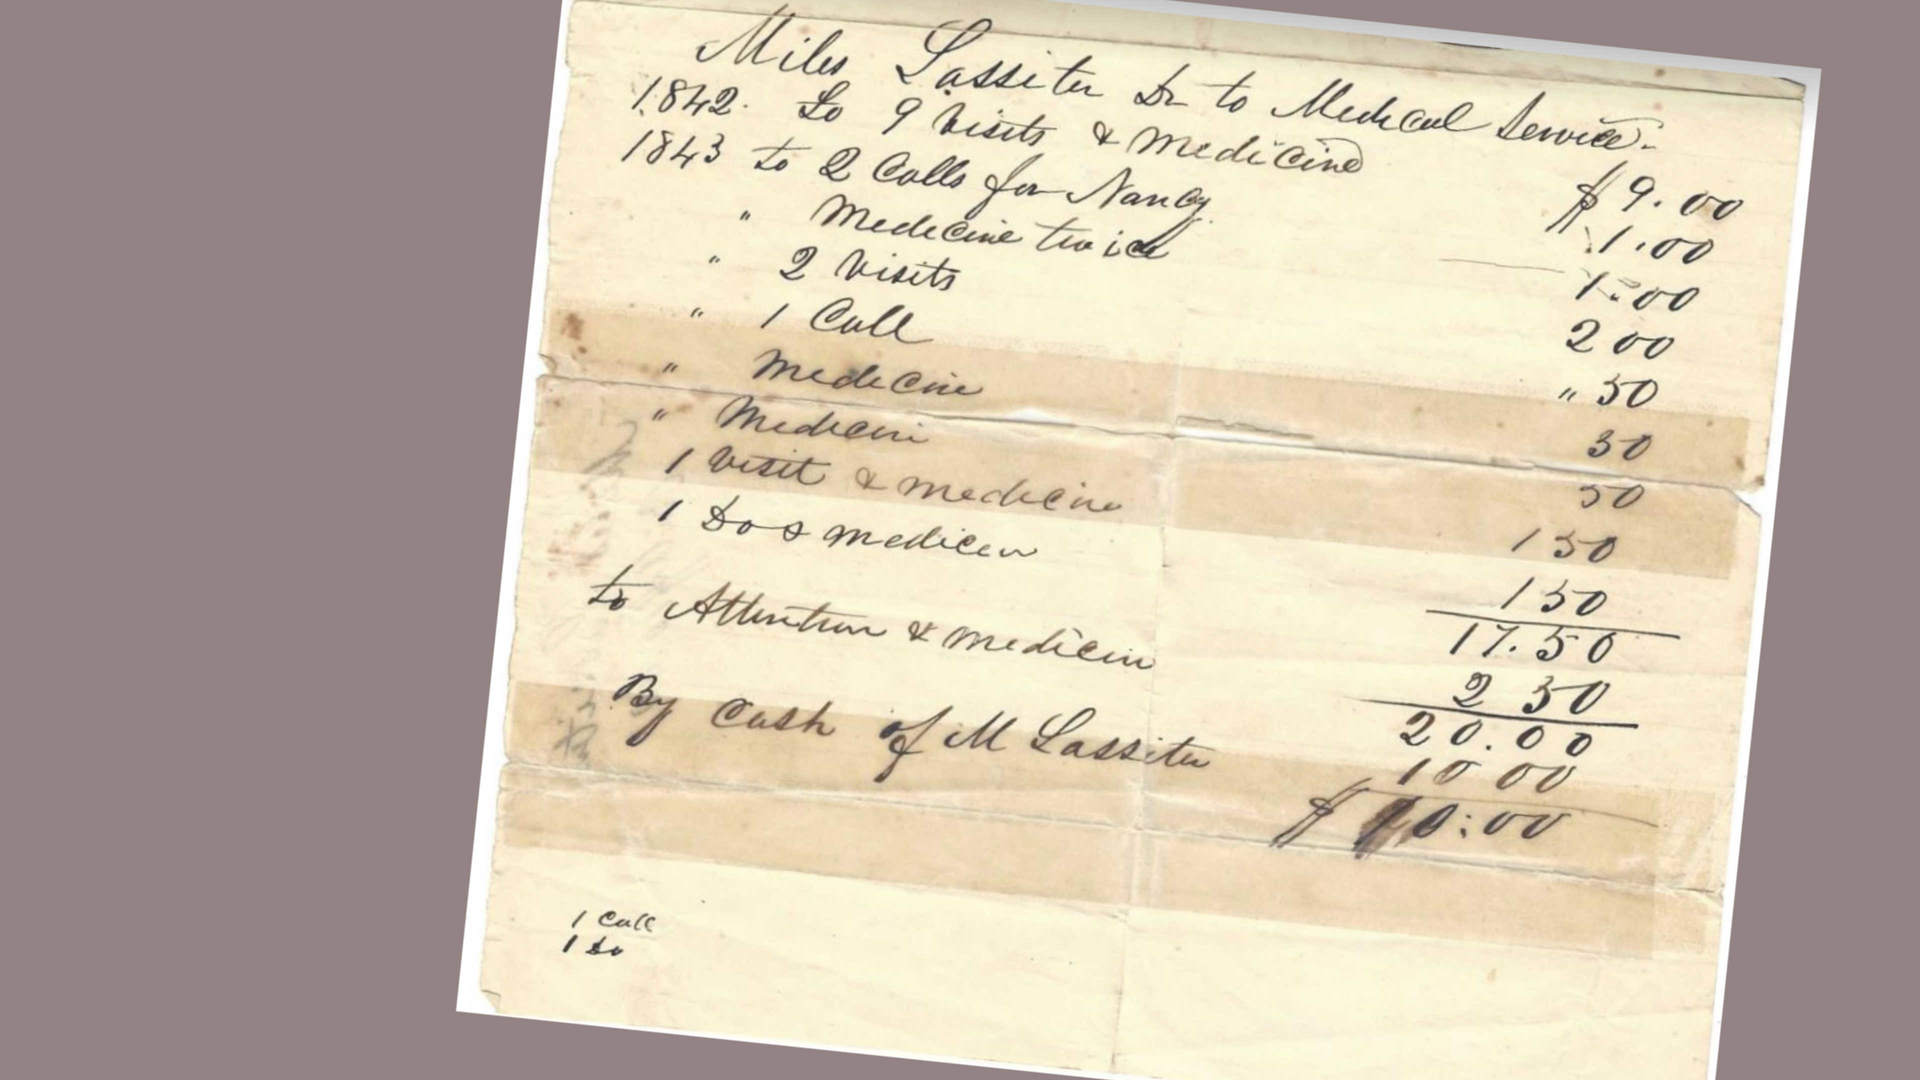 Miles Lassiter Dr to Medical Service.
1842. To 9 Visits & Medicine $9.00
1843 to 2 Calls for Nancy 1.00
" Medicine twice 1.00
" 2 Visits 2 00
" 1 Call " 50
" Medicine 50
" Medicin 50
1 Visit & Medicine 1 50
1 Do & Medicin 1 50
17.50
to Attention & Medicin 2 50
20.00
By Cash of M Lassiter 10 00
$ 10:00
1 Call
1 Do